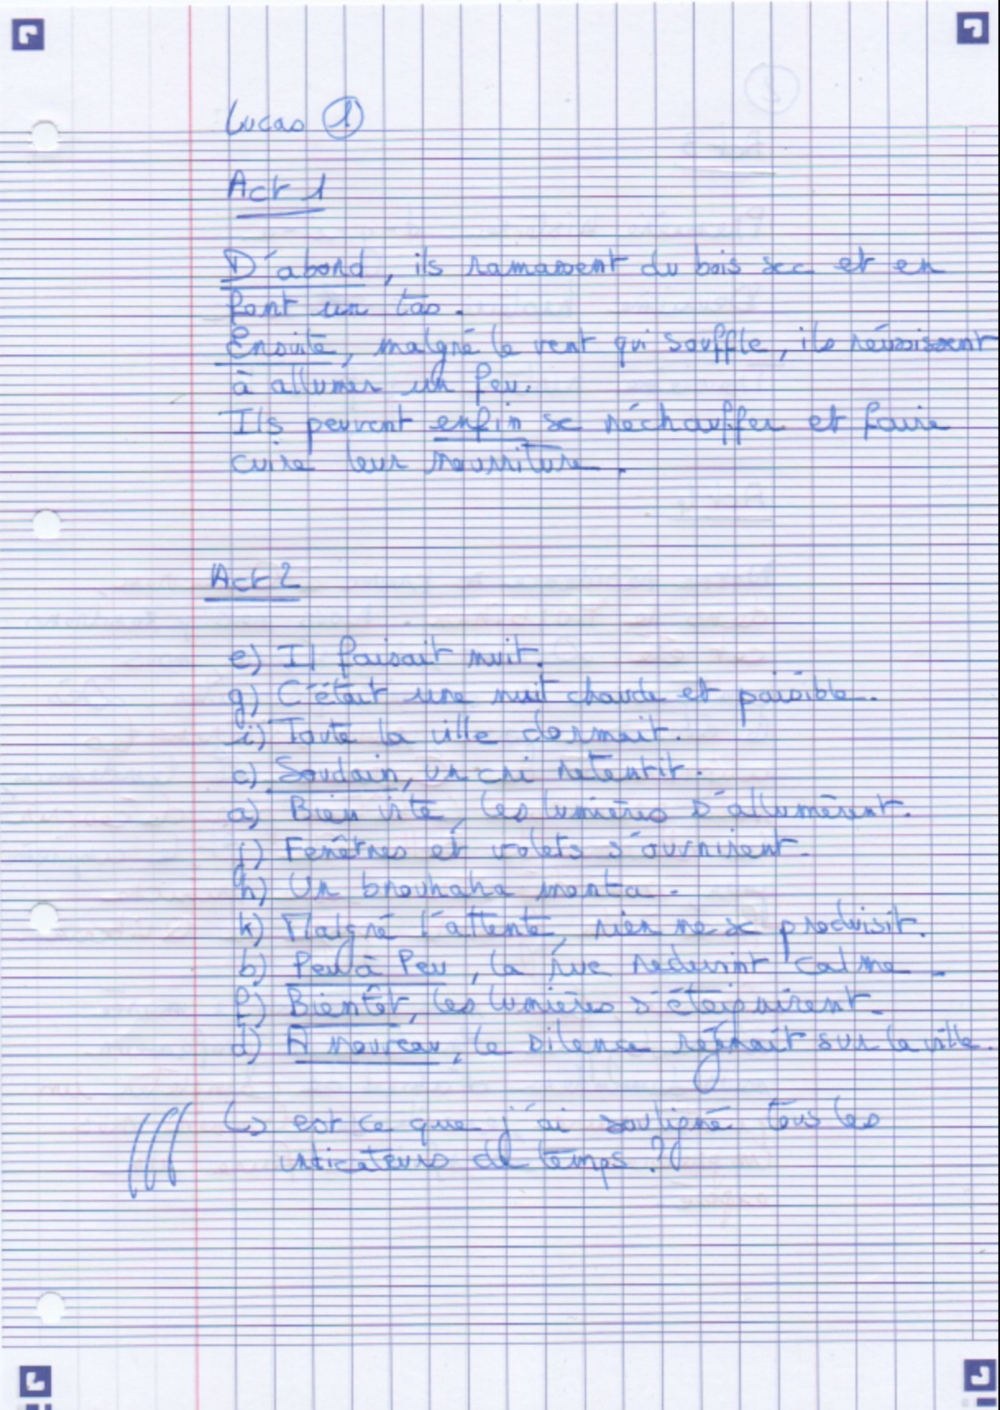 Lucas ①
Act 1
D'abord, ils ramassent du bois sec et en
font un tas.
Ensuite, malgré le vent qui souffle, ils réussissent
à allumer un feu.
Ils peuvent enfin se réchauffer et faire
cuire leur nourriture.
Act 2
e) Il faisait nuit.
g) C'était une nuit chaude et paisible.
i) Toute la ville dormait.
c) Soudain, un cri retentit.
a) Bien vite, les lumières s'allumèrent.
j) Fenêtres et volets s'ouvrirent.
h) Un brouhaha monta.
k) Malgré l'attente, rien ne se produisit.
b) Peu à Peu, la rue redevint calme.
f) Bientôt, les lumières s'éteignirent.
d) A nouveau, le silence régnait sur la ville.
↳ est ce que j'ai souligné tous les
indicateurs de temps ?